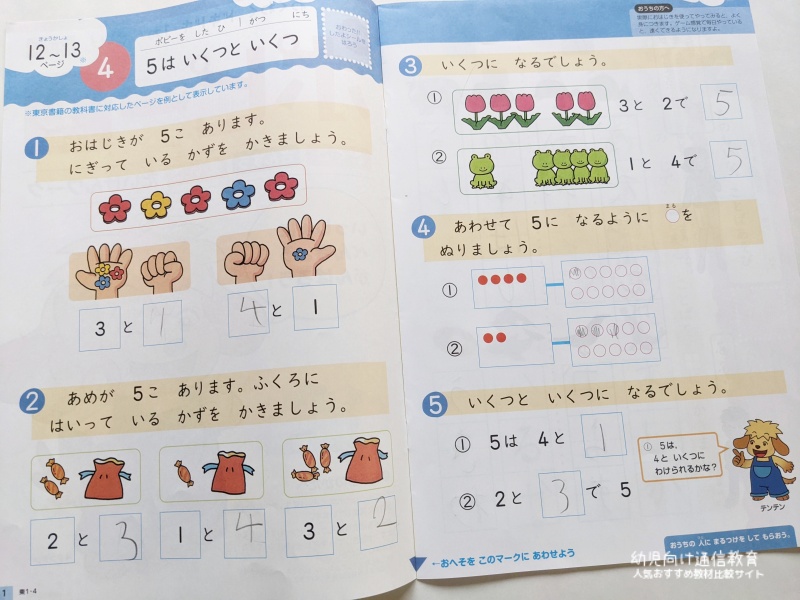 きょうかしょ
12〜13
ページ
4
ポピーを した ひ がつ にち
5は いくつと いくつ
おわったら
※東京書籍の教科書に対応したページを例として表示しています。
1 おはじきが 5こ あります。
にぎって いる かずを かきましょう。
3 と 1
4 と 1
2 あめが 5こ あります。ふくろに
はいって いる かずを かきましょう。
2 と 3
1 と 4
3 と 2
1 東1・4
おうちの方へ
3 いくつに なるでしょう。
① 3と 2で 5
② 1と 4で 5
4 あわせて 5に なるように ○を
まる
ぬりましょう。
①
②
5 いくつと いくつに なるでしょう。
① 5は 4と 1
② 2と 3 で 5
① 5は、
4と いくつに
わけられるかな？
テンテン
おうちの 人に まるつけを して もらおう。
←おへそを このマークに あわせよう
幼児向け通信教育
人気おすすめ教材比較サイト